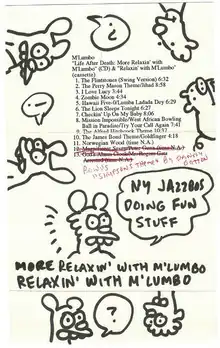 M'Lumbo
"Life After Death: More Relaxin' with
M'Lumbo" (CD) & "Relaxin' with M'Lumbo"
(cassette)
1. The Flintstones (Swing Version) 6:32
2. The Perry Mason Theme/Jihad 8:58
3. I Love Lucy 3:44
4. Zombie Moon 4:34
5. Hawaii Five-O/Lumbo Ladada Dey 6:29
6. The Lion Sleeps Tonight 6:27
7. Checkin' Up On My Baby 8:06
8. Mission Impossible/West African Bowling
Ball in Paradise/Try Your Call Again 7:41
9. The Alfred Hitchcock Theme 10:37
10. The James Bond Theme/Goldfinger 4:18
11. Norwegian Wood (time N.A.)
12. Gunn (time N.A.)
13. (time N.A.)
BONUS
"SIMPSONS THEME" BY DANNY
?
NY JAZZBOS
DOING FUN
STUFF
MORE RELAXIN' WITH M'LUMBO
RELAXIN' WITH M'LUMBO
?